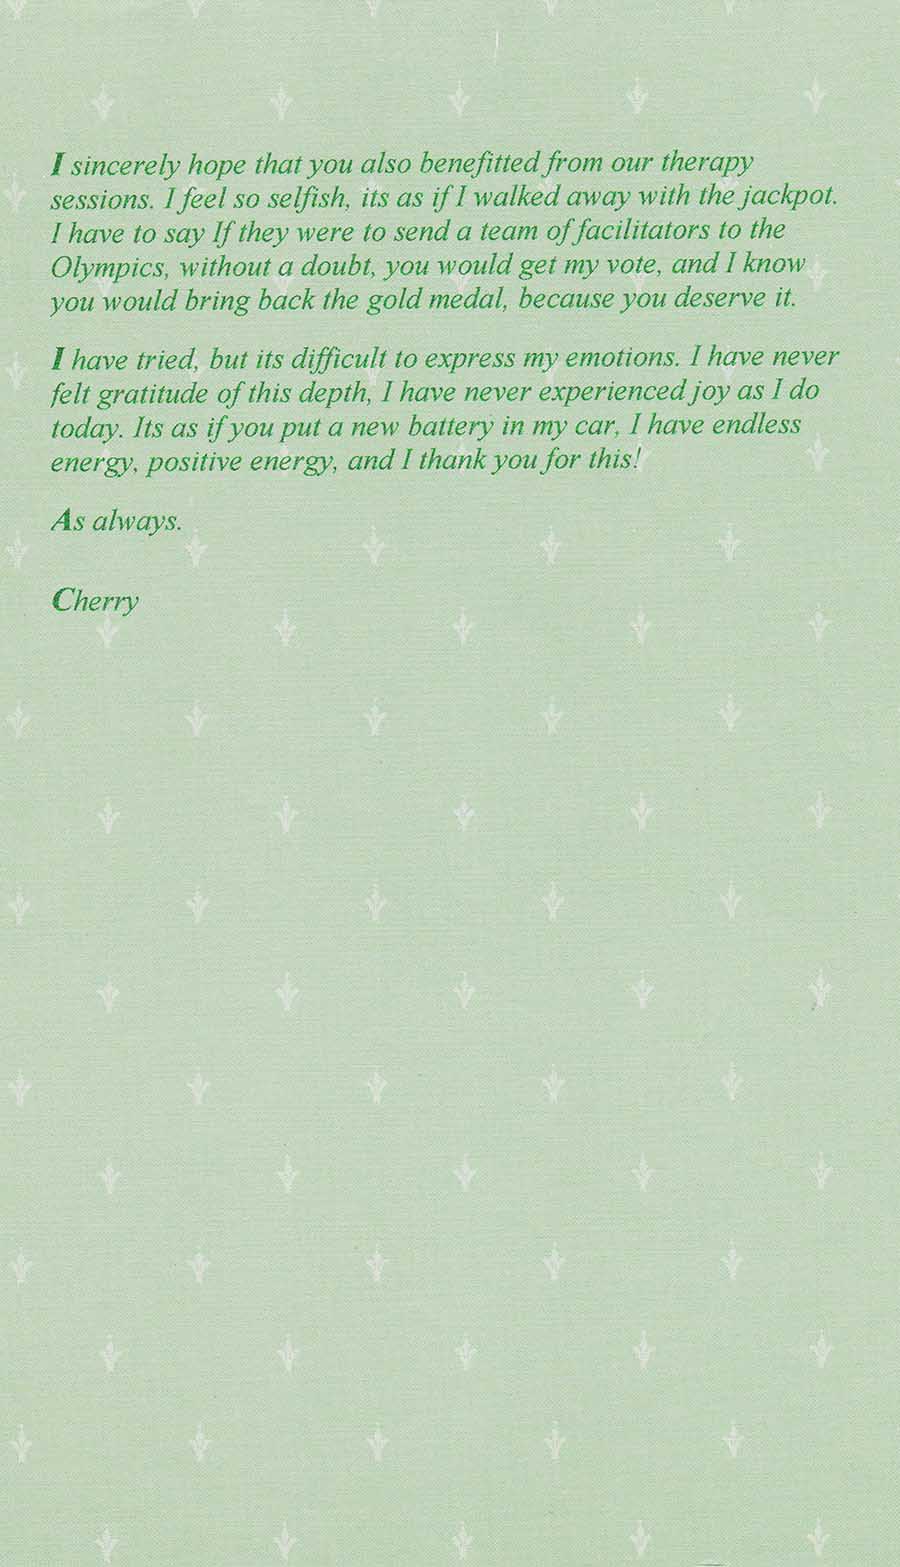 I sincerely hope that you also benefitted from our therapy
sessions. I feel so selfish, its as if I walked away with the jackpot.
I have to say If they were to send a team of facilitators to the
Olympics, without a doubt, you would get my vote, and I know
you would bring back the gold medal, because you deserve it.
I have tried, but its difficult to express my emotions. I have never
felt gratitude of this depth, I have never experienced joy as I do
today. Its as if you put a new battery in my car, I have endless
energy, positive energy, and I thank you for this!
As always.
Cherry